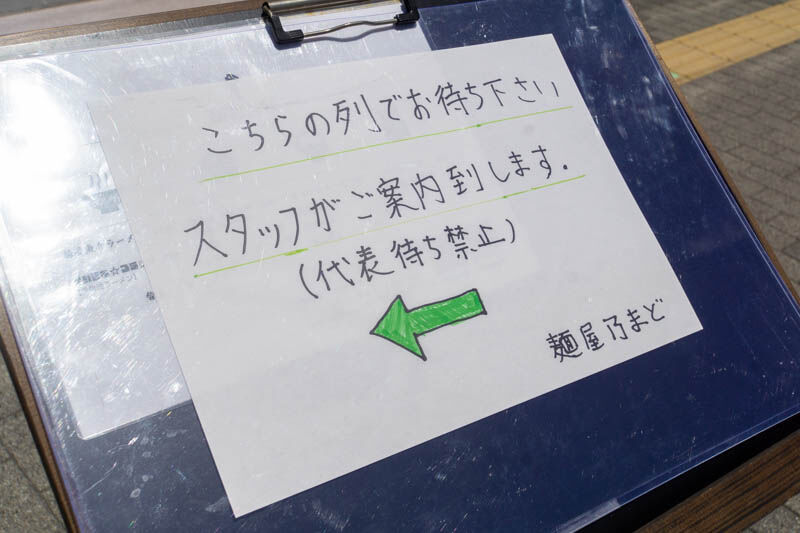 こちらの列でお待ち下さい
スタッフがご案内到します.
(代表待ち禁止)
麺屋乃まど